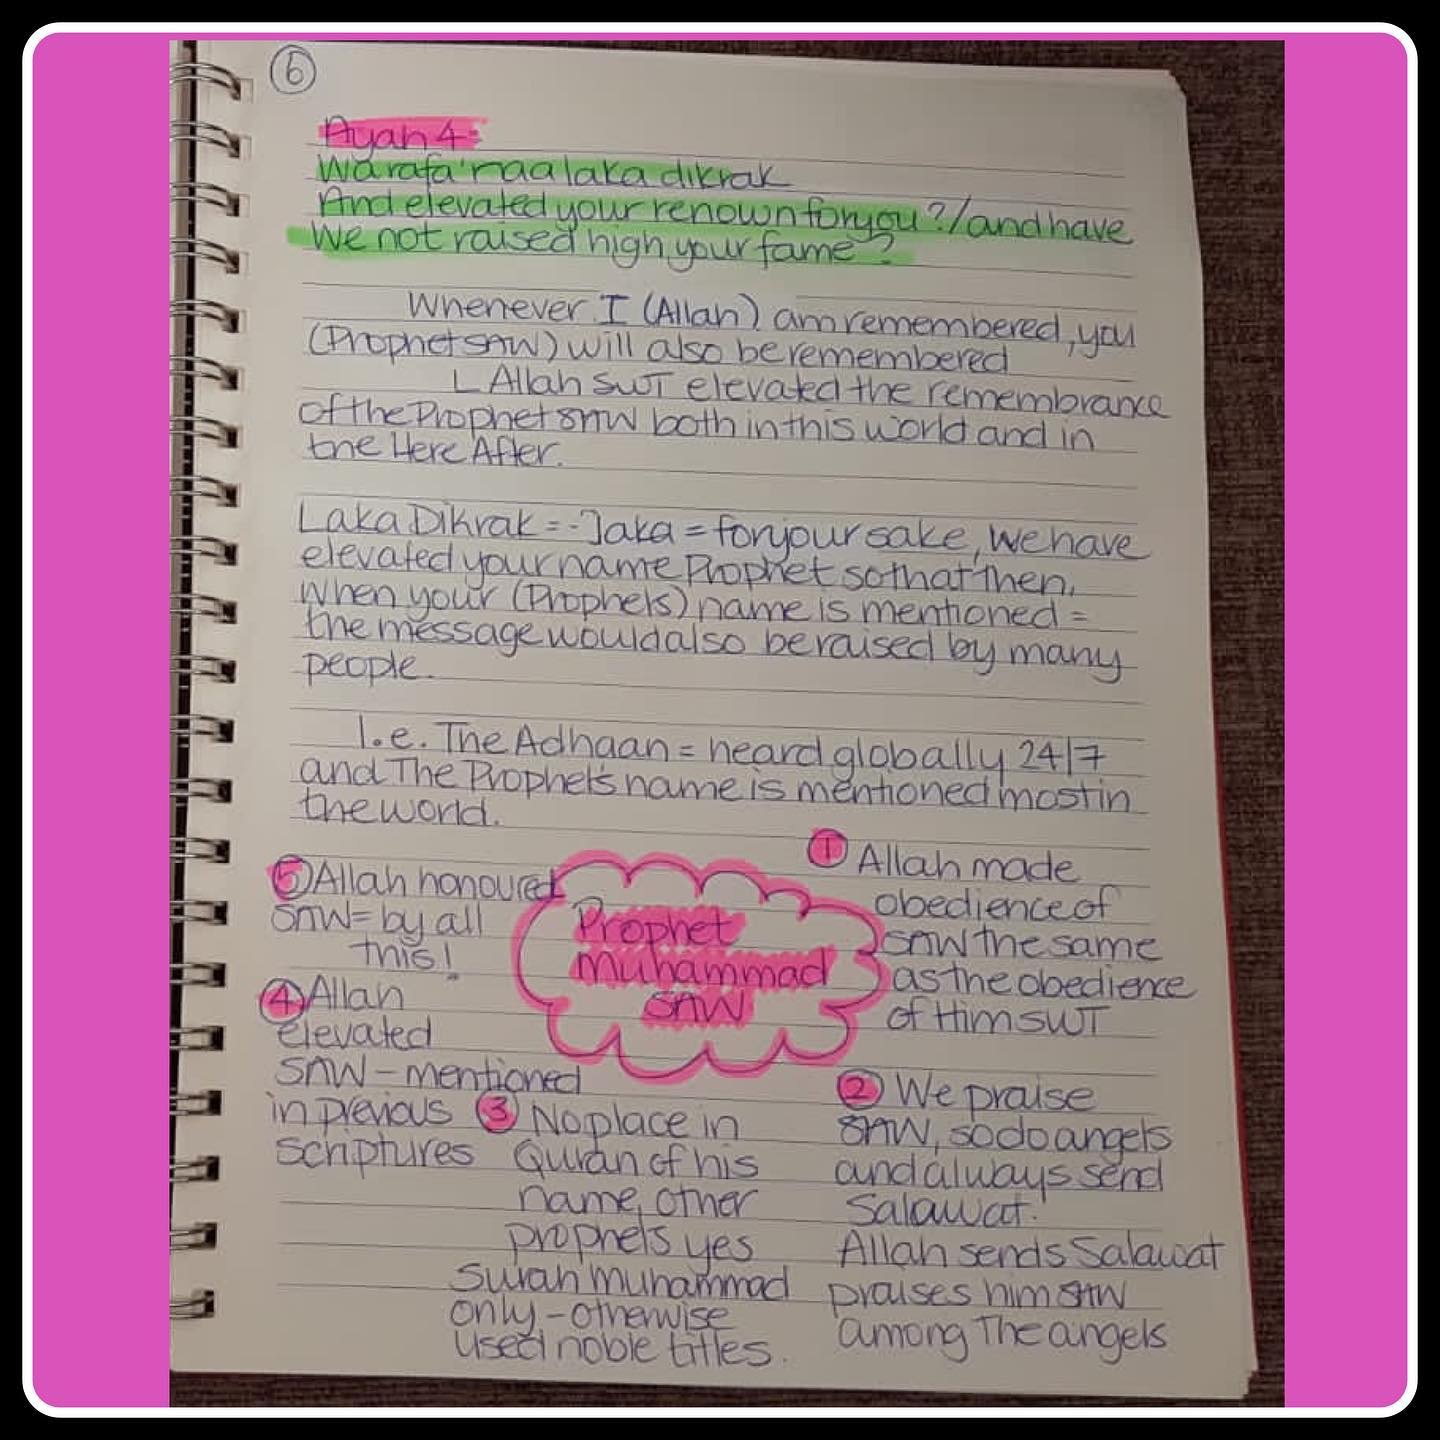 6
Ayah 4:
Wa rafa'naa laka dikrak
And elevated your renown for you?/and have
We not raised high your fame?
Whenever I (Allah) am remembered, you
(Prophet SAW) will also be remembered
L Allah SWT elevated the remembrance
of the Prophet SAW both in this world and in
the Here After.
Laka Dikrak = - laka = for your sake, We have
elevated your name Prophet so that then,
when your (Prophets) name is mentioned =
the message would also be raised by many
people.
I.e. The Adhaan = heard globally 24/7
and The Prophet's name is mentioned most in
the world.
Prophet
Muhammad
SAW
1 Allah made
obedience of
SAW the same
as the obedience
of Him SWT
2 We praise
SAW, so do angels
and always send
Salawat.
Allah sends Salawat
praises him SAW
among The angels
3 No place in
Quran of his
name, other
prophets yes
Surah Muhammad
only - otherwise
used noble titles.
4 Allah
elevated
SAW - mentioned
in previous
scriptures
5 Allah honoured
SAW = by all
this!